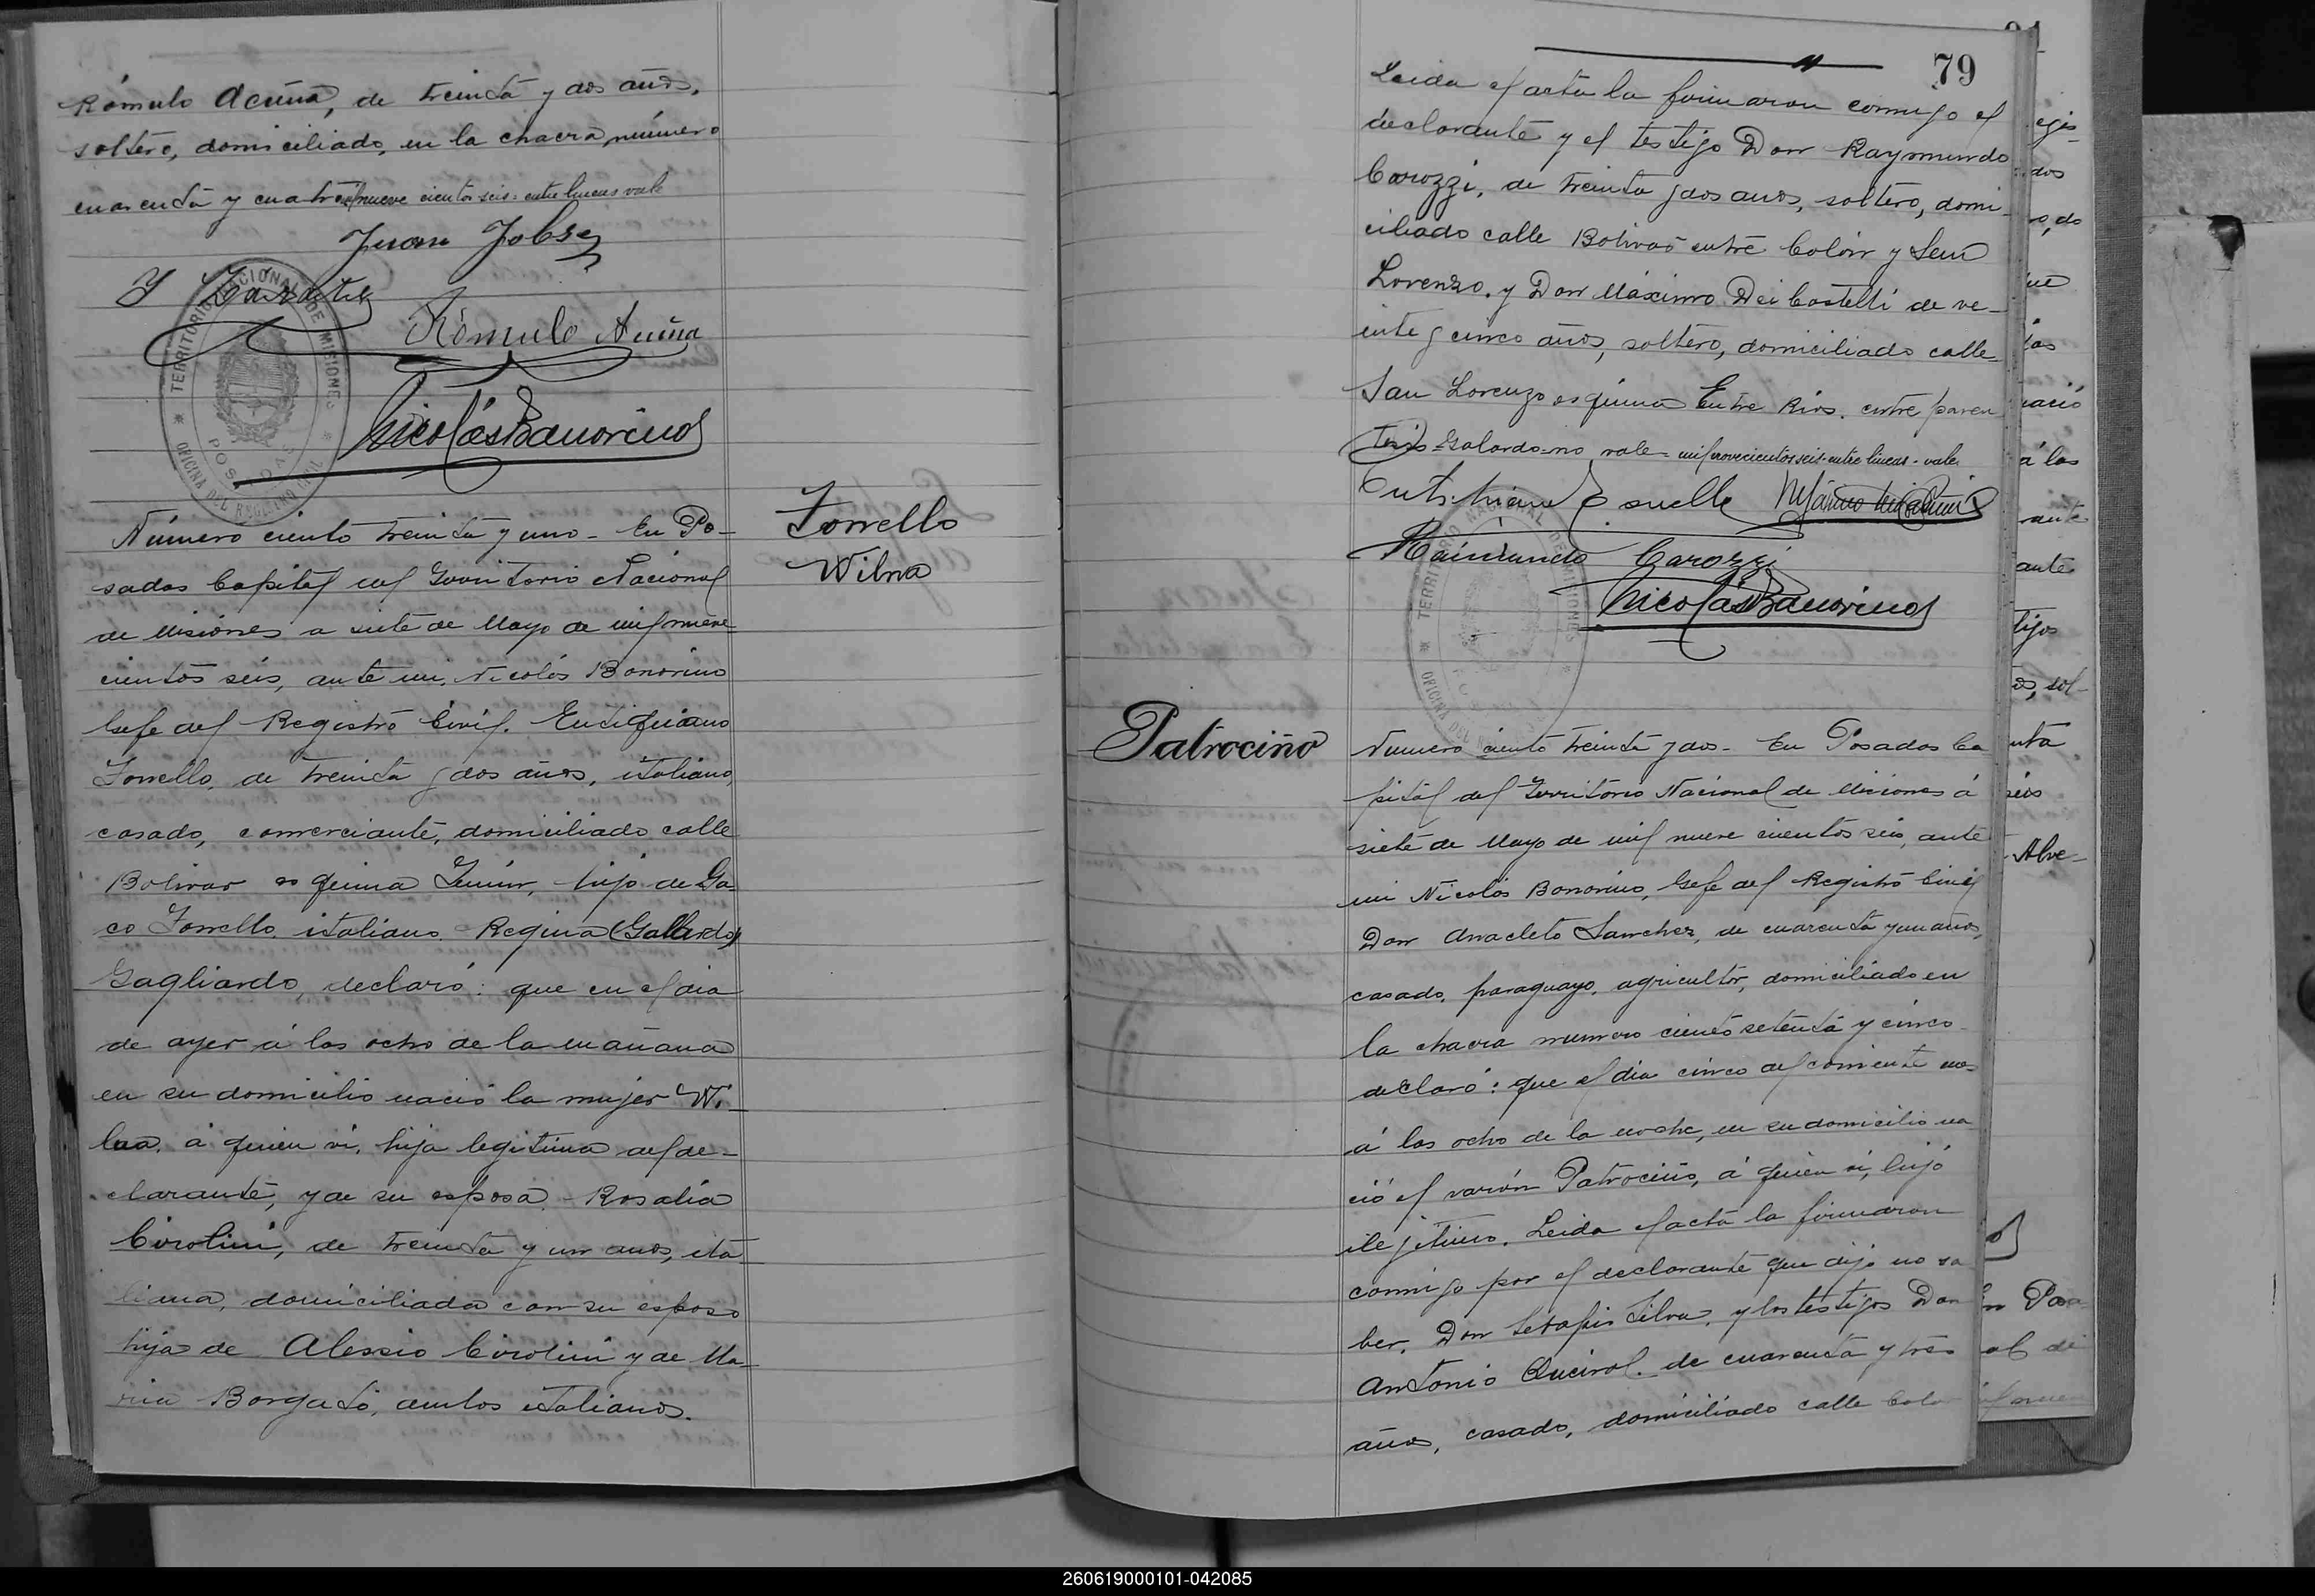 Rómulo Acuña, de treinta y dos años,
soltero, domiciliado, en la chacra, número
cuarenta y cuatro nueve cientos seis: entre lineas vale
Juan
Rómulo Acuña
Nicolás Bonorino
TERRITORIO NACIONAL DE MISIONES
POSADAS
OFICINA DEL REGISTRO CIVIL
Número ciento treinta y uno - En Po-
sadas Capital del Territorio Nacional
de Misiones a siete de Mayo de mil nueve-
cientos seis, ante mi, Nicolás Bonorino
Gefe del Registro Civil. Eutiquiano
Torrello, de treinta y dos años, italiano,
casado, comerciante, domiciliado calle
Bolivar esquina Junin, hijo de Ga-
co Torrello, italiano. Regina (Gallardo)
Gagliardo, declaró: que en el dia
de ayer á las ocho de la mañana
en su domicilio nació la mujer Wi-
lna, á quien vi, hija legitima del de-
clarante, y de su esposa Rosalia
Cirolini, de treinta y un anos, ita-
liana, domiciliada con su esposo
hija de Alessio Cirolini y de Ma-
ria Borgato, ambos italianos.
Torrello
Wilna
79
Leida el acta la firmaron conmigo el
declarante y el testigo Don Raymundo
Carozzi, de treinta y dos anos, soltero, domi-
ciliado calle Bolivar entre Colón y San
Lorenzo. y Don Máximo Dei Castelli de ve-
inte y cinco años, soltero, domiciliado calle
San Lorenzo esquina Entre Rios. entre paren
tesis = Galardo = no vale = mil novecientos seis = entre lineas - vale
Raimundo Carozzi
Nicolás Bonorino
TERRITORIO NACIONAL DE MISIONES
OFICINA DEL
Patrociño
Numero ciento treinta y dos - En Posadas Ca
pital del Territorio Nacional de Misiones á
siete de Mayo de mil nueve cientos seis, ante
mi Nicolás Bonorino, Gefe del Registro Civil
Don Anacleto Sanchez, de cuarenta y un años,
casado, paraguayo, agricultor, domiciliado en
la chacra numero ciento setenta y cinco
declaró: que el dia cinco del corriente mes
á las ocho de la noche, en su domicilio na
ció el varón Patrociño, á quien vi, hijo
ilejitimo. Leida el acta la firmaron
conmigo por el declarante que dijo no sa
ber, Don Serapio Silva, y los testigos Don
Antonio Queirol, de cuarenta y tres
años, casado, domiciliado calle Colo
260619000101-042085